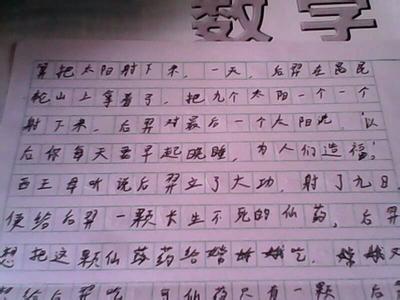 数学
把太阳射下来。一天，后羿在昆昆
山上拿着弓，把九个太阳一个一个
射下来。后羿对最后一个太阳说：“以
后你每天要早起晚睡，为人们造福。”
西王母听说后羿立了大功，射了九日，
便给后羿一颗长生不死的仙药。后羿
想把这颗仙药给嫦娥吃。嫦娥又
想给后羿吃，可仙药只有一颗，后羿